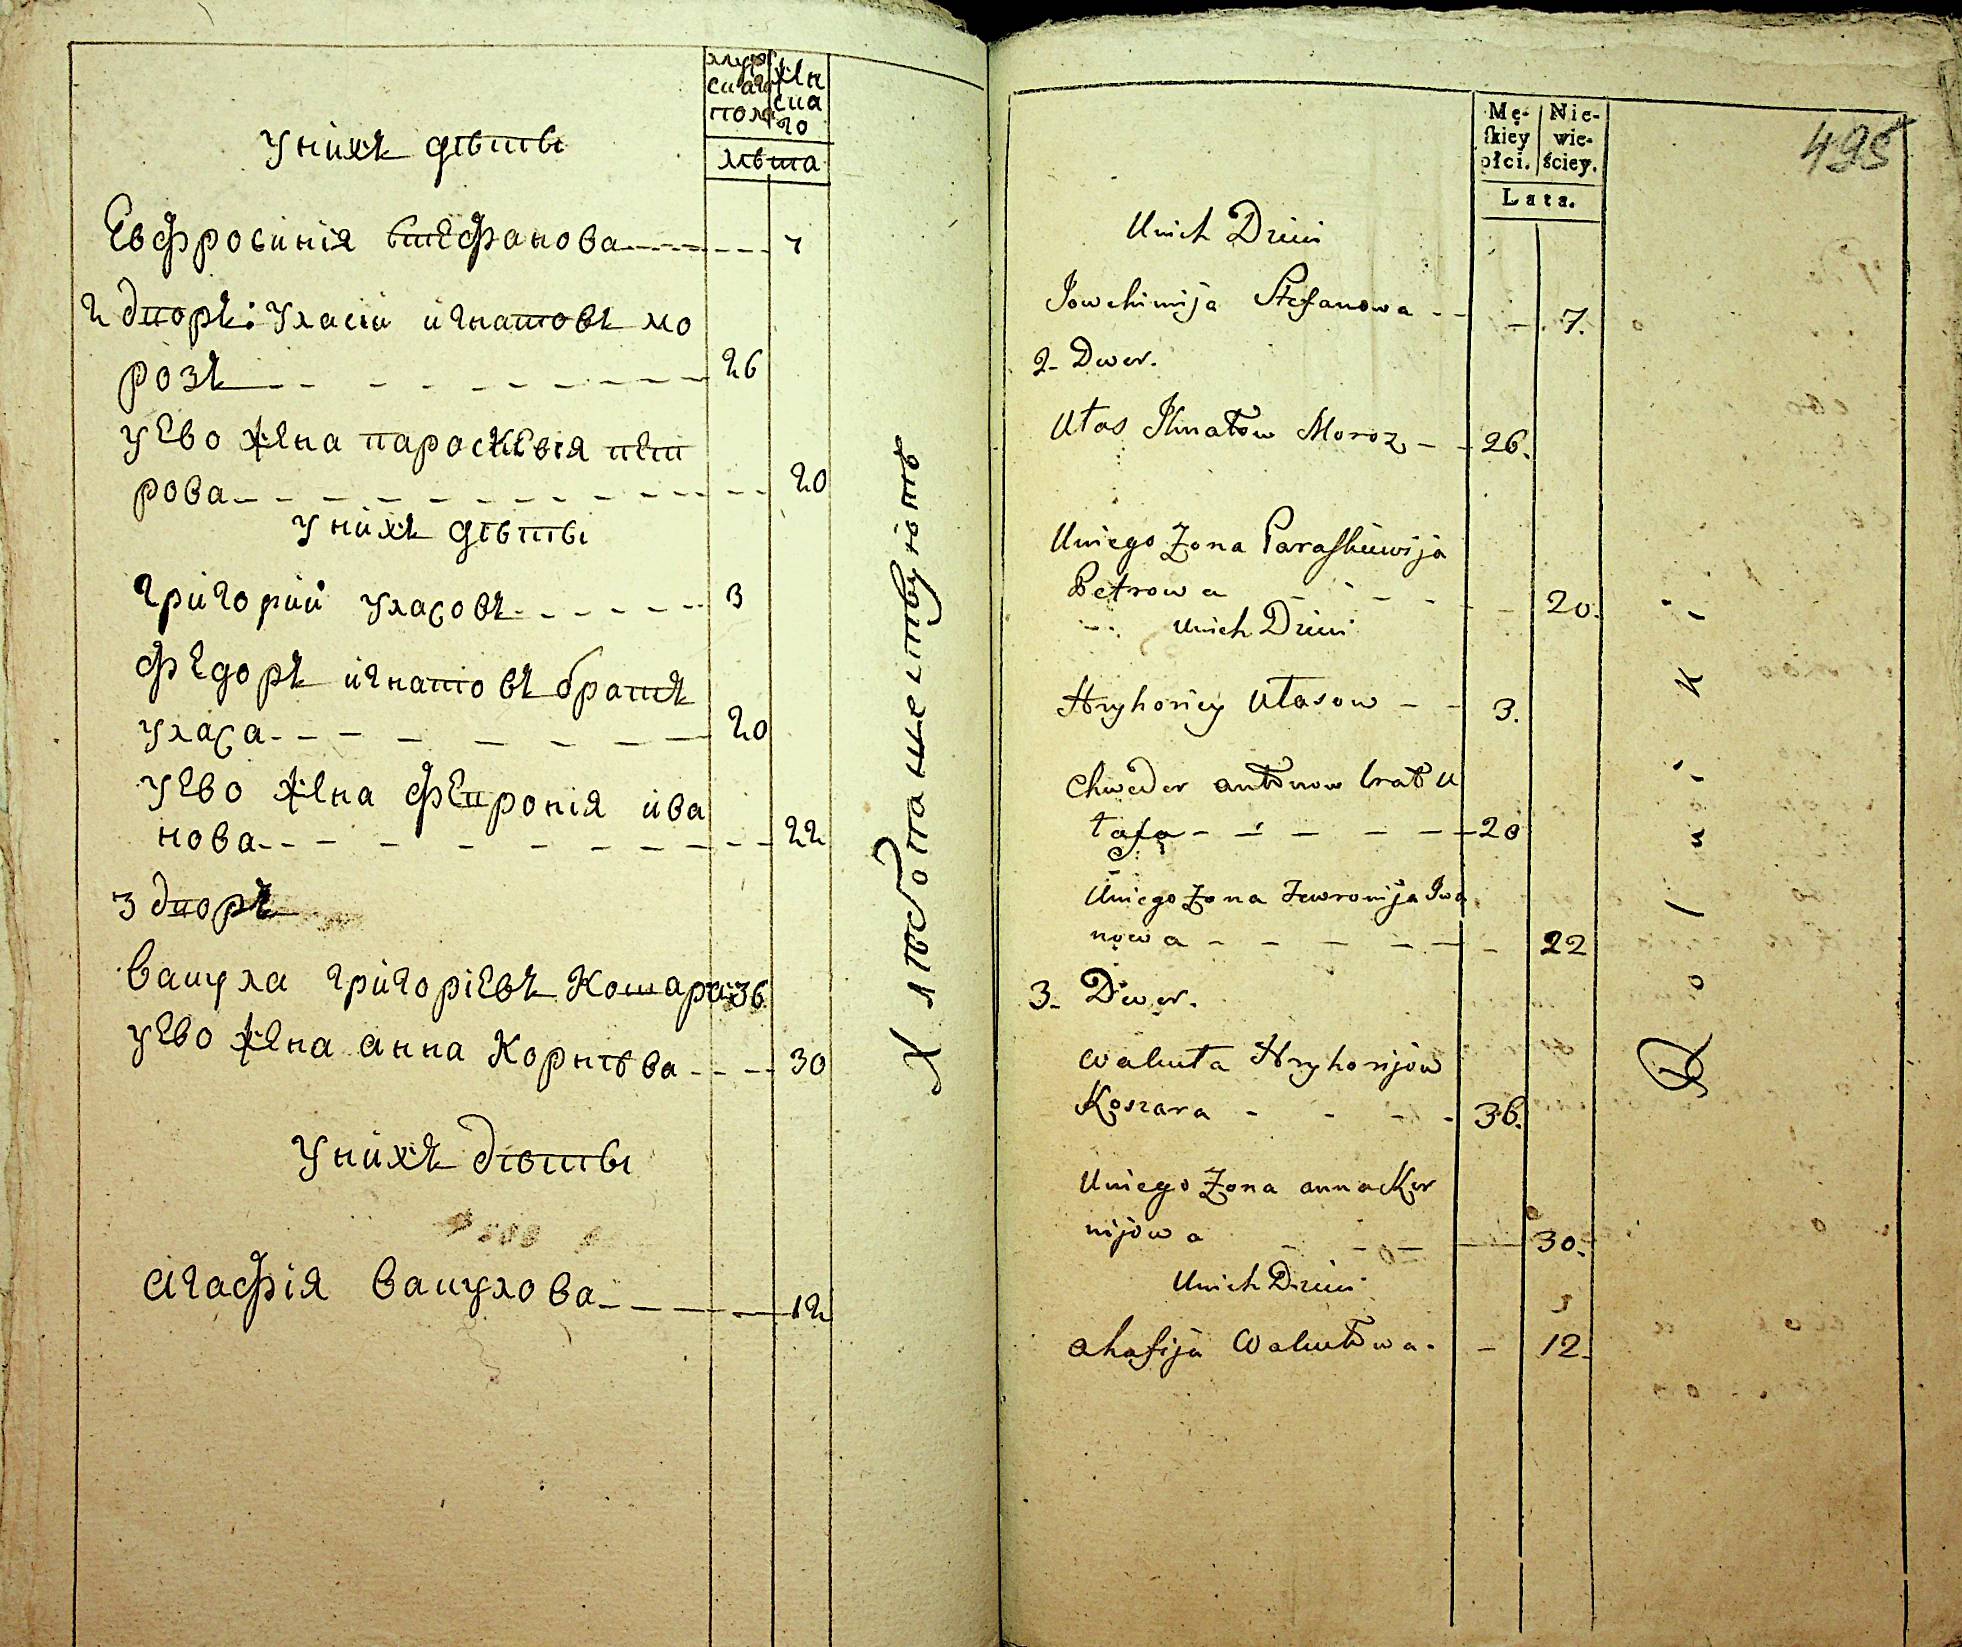 мус
скаго
пола
женс
каго
лѣта
Унихъ дѣты
Евфросинія Стефанова 7
2 дворъ: Уласій Игнатовъ Мо
розъ 26
Уево жена Параскевія Пет
рова 20
Унихъ дѣты
Григорий Уласовъ 3
Федоръ Игнатовъ братъ
Уласа 20
Уево жена Февронія Ива
нова 22
3 дворъ
Вакула Григоріевъ Кошара 36
Уево жена Анна Корнѣва 30
Унихъ дѣты
Агафія Вакулова 12
Хлѣбопашествуютъ
Mę-
skiey
płci.
Nie-
wie-
ściey.
Lata.
495
Unich Dzieci
Stefanowa 7.
2. Dwor.
Ułas Ihnatow Moroz 26.
Uniego Żona Paraskiewija
Petrowa 20.
Unich Dzieci
Hryhoriey Ułasow 3.
Chwedor antonow brat U
łasa 20
Uniego Żona Fewronija Iwa
nowa 22
3. Dwor.
Wakuła Hryhorijow
Koszara 36.
Uniego Żona anna Kor
nijowa 30.
Unich Dzieci
ahafija Wakułowa. 12.
Rolniki